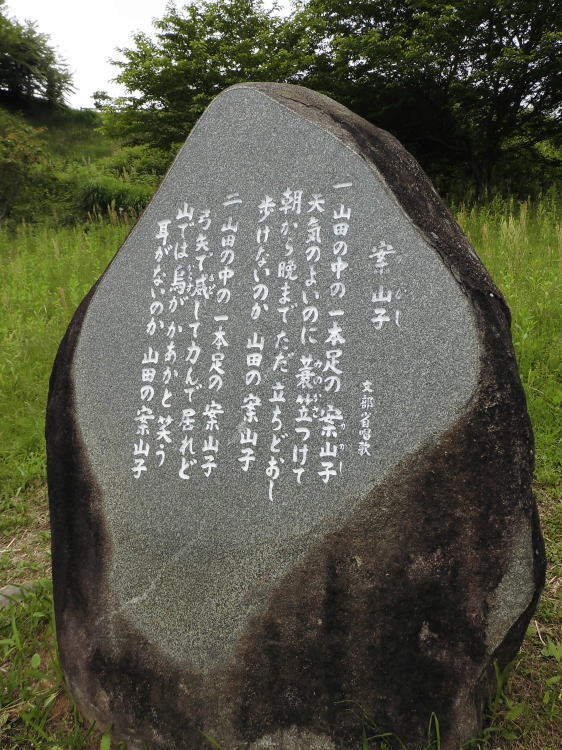 案山子
文部省唱歌
一 山田の中の 一本足の 案山子
天気のよいのに 蓑笠つけて
朝から晩まで ただ立ちどおし
歩けないのか 山田の案山子
二 山田の中の 一本足の 案山子
弓矢で威して力んで居れど
山では烏がかあかと笑う
耳がないのか 山田の案山子